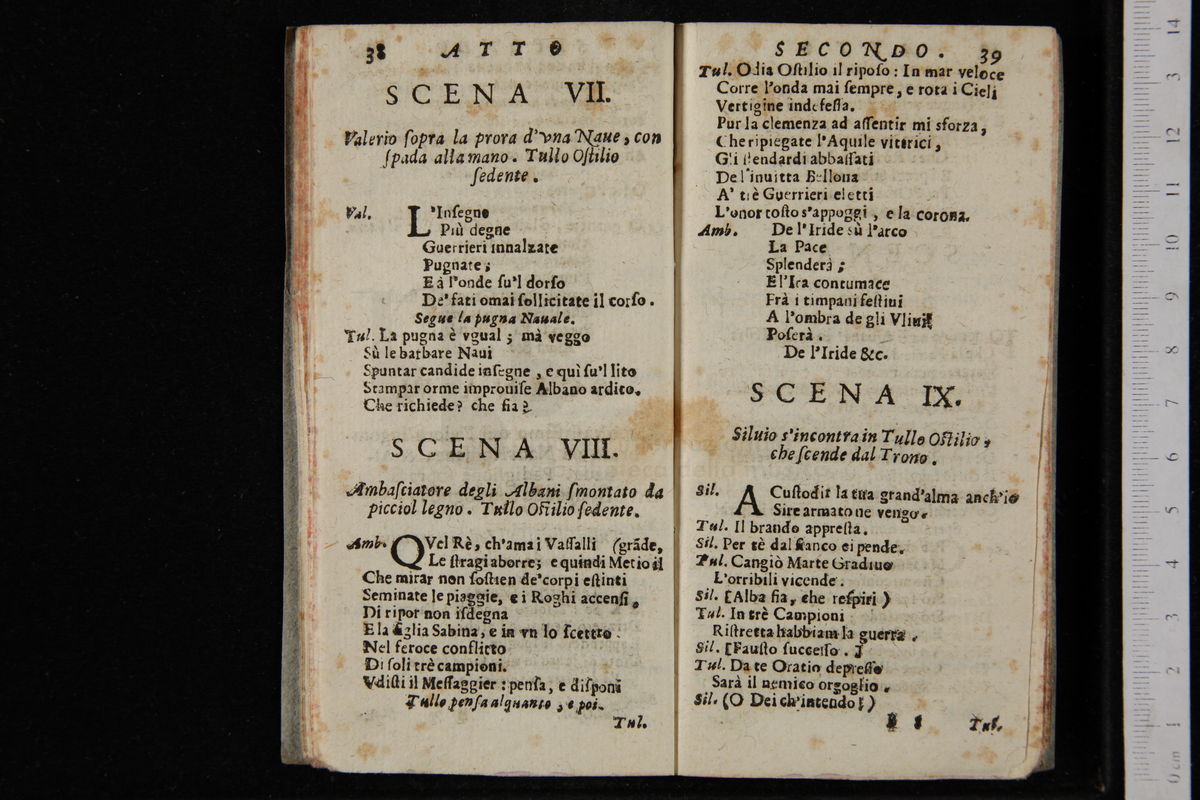 38 ATTO
SCENA VII.
Valerio ſopra la prora d'vna Naue, con
ſpada alla mano. Tullo Oſtilio
ſedente.
Val. L'Inſegne
Più degne
Guerrieri innalzate
Pugnate;
E à l'onde ſu'l dorſo
De' fati omai ſollicitate il corſo.
Segue la pugna Nauale.
Tul. La pugna è vgual; mà veggo
Sù le barbare Naui
Spuntar candide inſegne, e quì ſu'l lito
Stampar orme improuiſe Albano ardito.
Che richiede? che fia?
SCENA VIII.
Ambaſciatore degli Albani ſmontato da
picciol legno. Tullo Oſtilio ſedente.
Amb. QVel Rè, ch'ama i Vaſſalli (grãde,
Le ſtragi aborre; e quindi Metio il
Che mirar non ſoſtien de'corpi eſtinti
Seminate le piaggie, e i Roghi accenſi,
Di ripor non iſdegna
E la figlia Sabina, e in vn lo ſcettro.
Nel feroce conflitto
Di ſoli trè campioni.
Vdiſti il Meſſaggier: penſa, e diſponi
Tullo penſa alquanto, e poi.
Tul.
SECONDO. 39
Tul. Odia Oſtilio il ripoſo: In mar veloce
Corre l'onda mai ſempre, e rota i Cieli
Vertigine indefeſſa.
Pur la clemenza ad aſſentir mi sforza,
Che ripiegate l'Aquile vittrici,
Gli ſtendardi abbaſſati
De l'inuitta Bellona
A' trè Guerrieri eletti
L'onor toſto s'appoggi, e la corona.
Amb. De l'Iride sù l'arco
La Pace
Splenderà;
E l'Ira contumace
Frà i timpani feſtiui
A l'ombra de gli Vliui
Poſerà.
De l'Iride &c.
SCENA IX.
Siluio s'incontra in Tullo Oſtilio,
che ſcende dal Trono.
Sil. A Cuſtodir la tua grand'alma anch'io
Sire armato ne vengo.
Tul. Il brando appreſta.
Sil. Per tè dal fianco ei pende.
Tul. Cangiò Marte Gradiuo
L'orribili vicende.
Sil. (Alba fia, che reſpiri)
Tul. In trè Campioni
Riſtretta habbiam la guerra.
Sil. [Fauſto ſucceſſo.]
Tul. Da te Oratio depreſſo
Sarà il nemico orgoglio.
Sil. (O Dei ch'intendo!)
Tul.